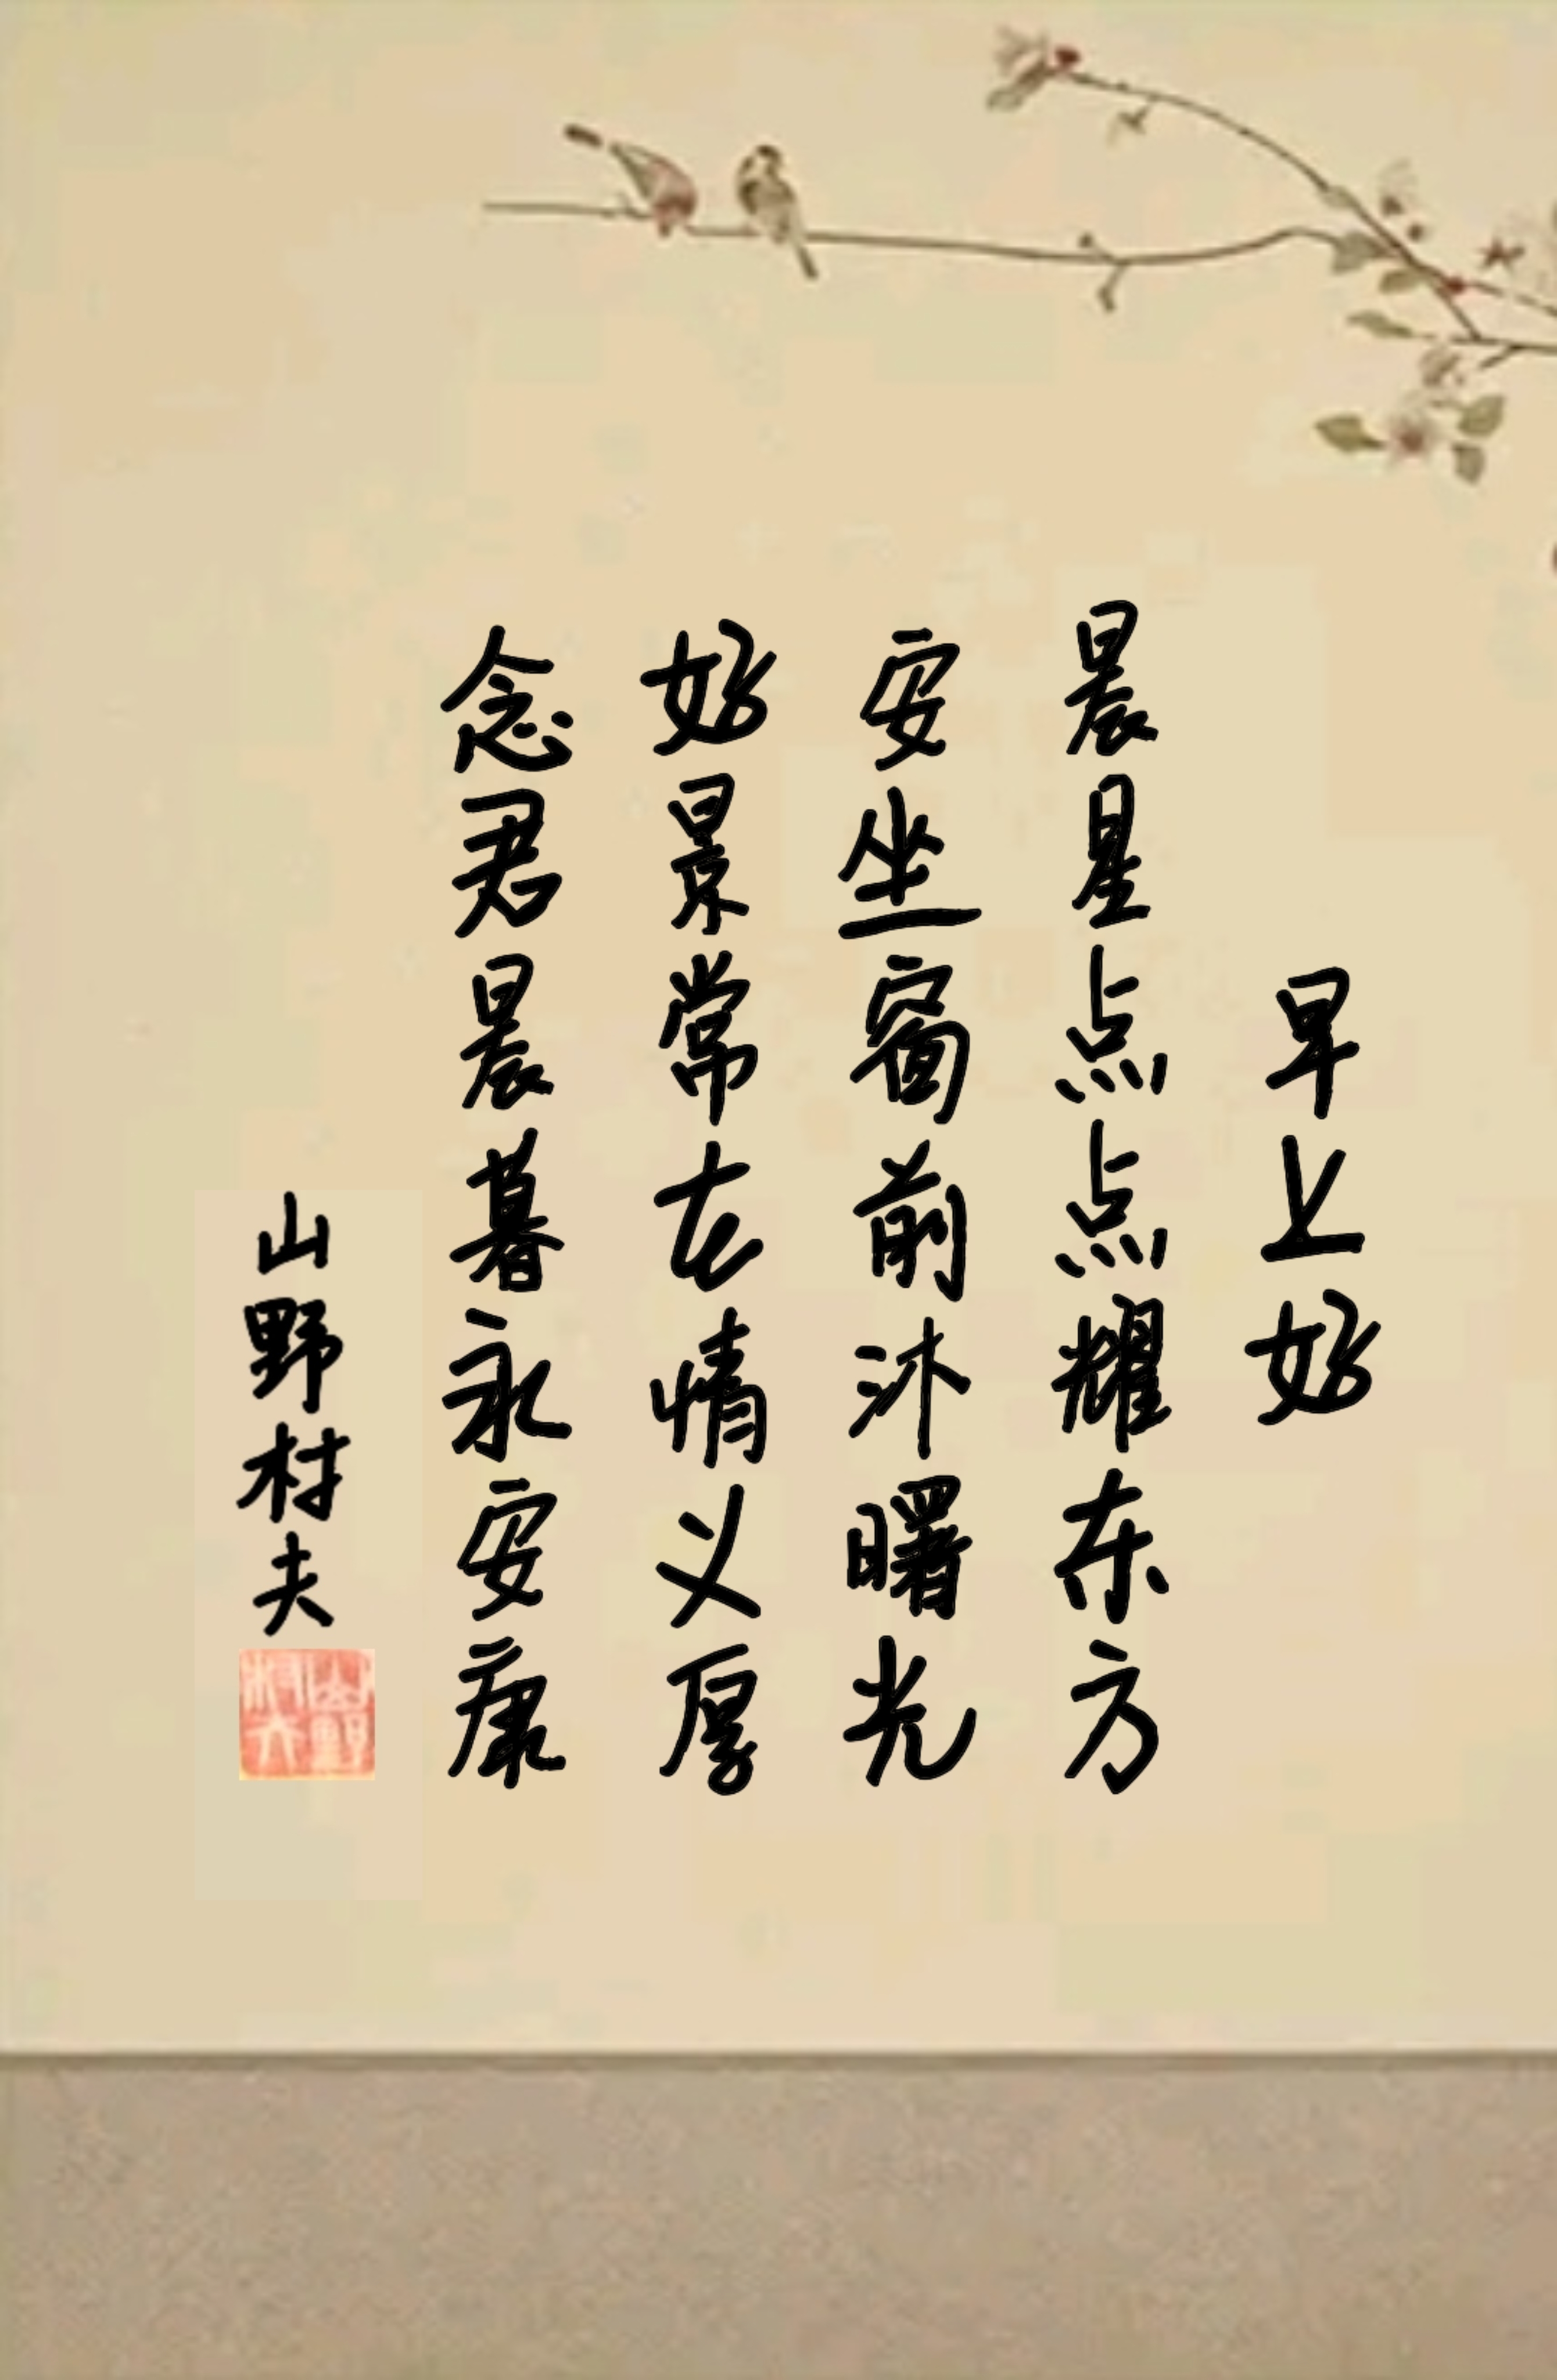 早上好
晨星点点耀东方
安坐窗前沐曙光
好景常在情义厚
念君晨暮永安康
山野村夫
山野村夫